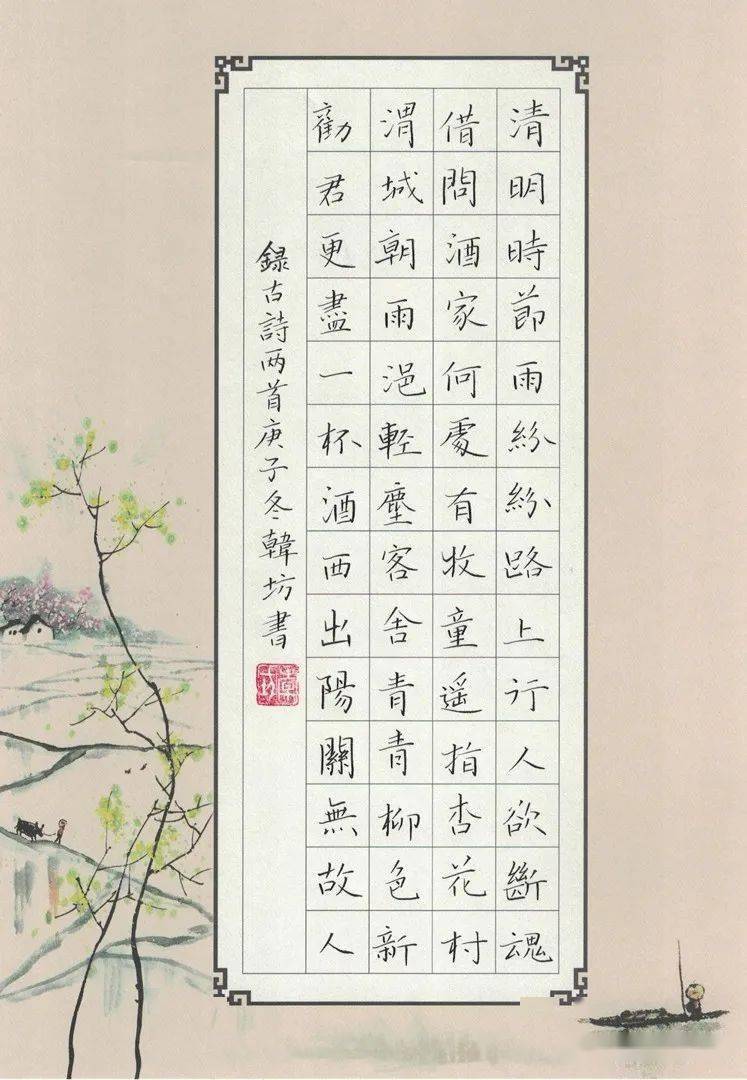 清明時節雨紛紛路上行人欲斷魂
借問酒家何處有牧童遥指杏花村
渭城朝雨浥輕塵客舍青青柳色新
勸君更盡一杯酒西出陽關無故人
録古詩两首庚子冬韓坊書